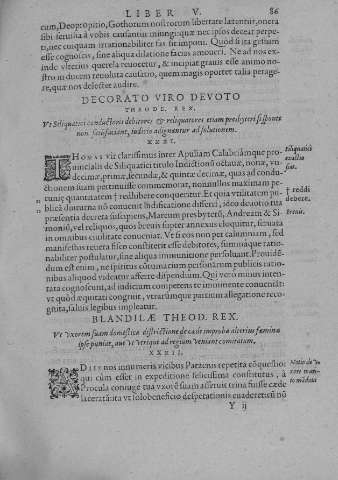 LIBER V. 86
cum, Deopropitio, Gothorum nostrorum libertate latentur, onera
sibi seruitia à vobis causantur iniungi: quæ nec ipsos decet perpe-
ti, nec cuiquam irrationabiliter fas sit imponi. Quòd si ita gestum
esse cognoscis, sine aliqua dilatione facias amoueri. Ne ad nos ex-
inde vlterius querela reuocetur, & incipiat grauis esse animo no-
stro in ducem reuoluta causatio, quem magis oportet talia perage-
re, quæ nos delectet audire.
DECORATO VIRO DEVOTO
THEODE. REX.
Vt Siliquatici conductoris debitores & reliquatores etiam presbyteri si sponte
non satisfaciant, iudicio adigantur ad solutionem.
XXXI.
THOMAS vir clarissimus inter Apuliam Calabriámque pro-
uincialis de Siliquatici titulo Indictionis octauæ, nonæ, vn-
decimæ, primæ, secundæ, & quintæ decimæ, quas ad condu-
ctionem suam pertinuisse commemorat, nonnullos maximam pe-
cuniæ quantitatem † relidhere conqueritur. Et quia debitum pu-
blicū diuturna nō conuenit ludificatione differri, ideo deuotio tua
præsentia decreta suspiciens, Marcum presbyterū, Andream & Si-
moniū, vel reliquos, quos breuis supter annexus eloquitur, seruata
in omnibus ciuilitate conueniat. Vt si eos non per calumniam, sed
manifestos reuera esse constiterit esse debitores, summáque ratio-
nabiliter postulatur, sine aliqua imminutione persoluant. Prouidē-
dum est enim, ne ipsitius cōtumaciam personarum publicis ratio-
nibus aliquod videatur afferre dispendium. Qui verò minus inten-
tata cognoscunt, ad iudicium competens te imminente conueniāt:
vt quòd æquitati congruit, vtrarúmque partium allegatione reco-
gnita, saluis legibus impleatur.
siliquatici
exactio
sui.
† reddi
debere.
Breuis.
BLANDILÆ THEOD. REX.
Vt vxorem suam domesticæ districtione de cæde improba alterius fæminæ
ipse puniat, aut vt vterque ad regium veniant comitatum.
XXXII.
ADIIT nos innumeris vicibus Patzenis repetita cōquestio:
qui cùm esset in expeditione felicissima constitutus, à
Procula coniuge tua vxorē suam asseruit trina fuisse cæde
laceratā: ita vt solo beneficio desperationis euaderet: cùm nō
Y ij